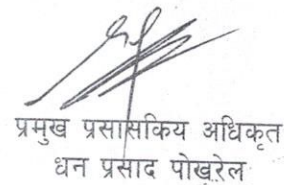 प्रमुख प्रसासकिय अधिकृत
धन प्रसाद पोखरेल